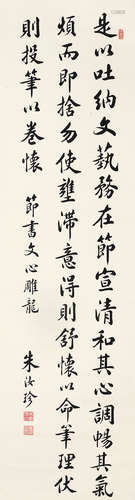 是以吐納文藝務在節宣清和其心調暢其氣
煩而即捨勿使壅滯意得則舒懷以命筆理伏
則投筆以卷懷
節書文心雕龍
朱汝珍